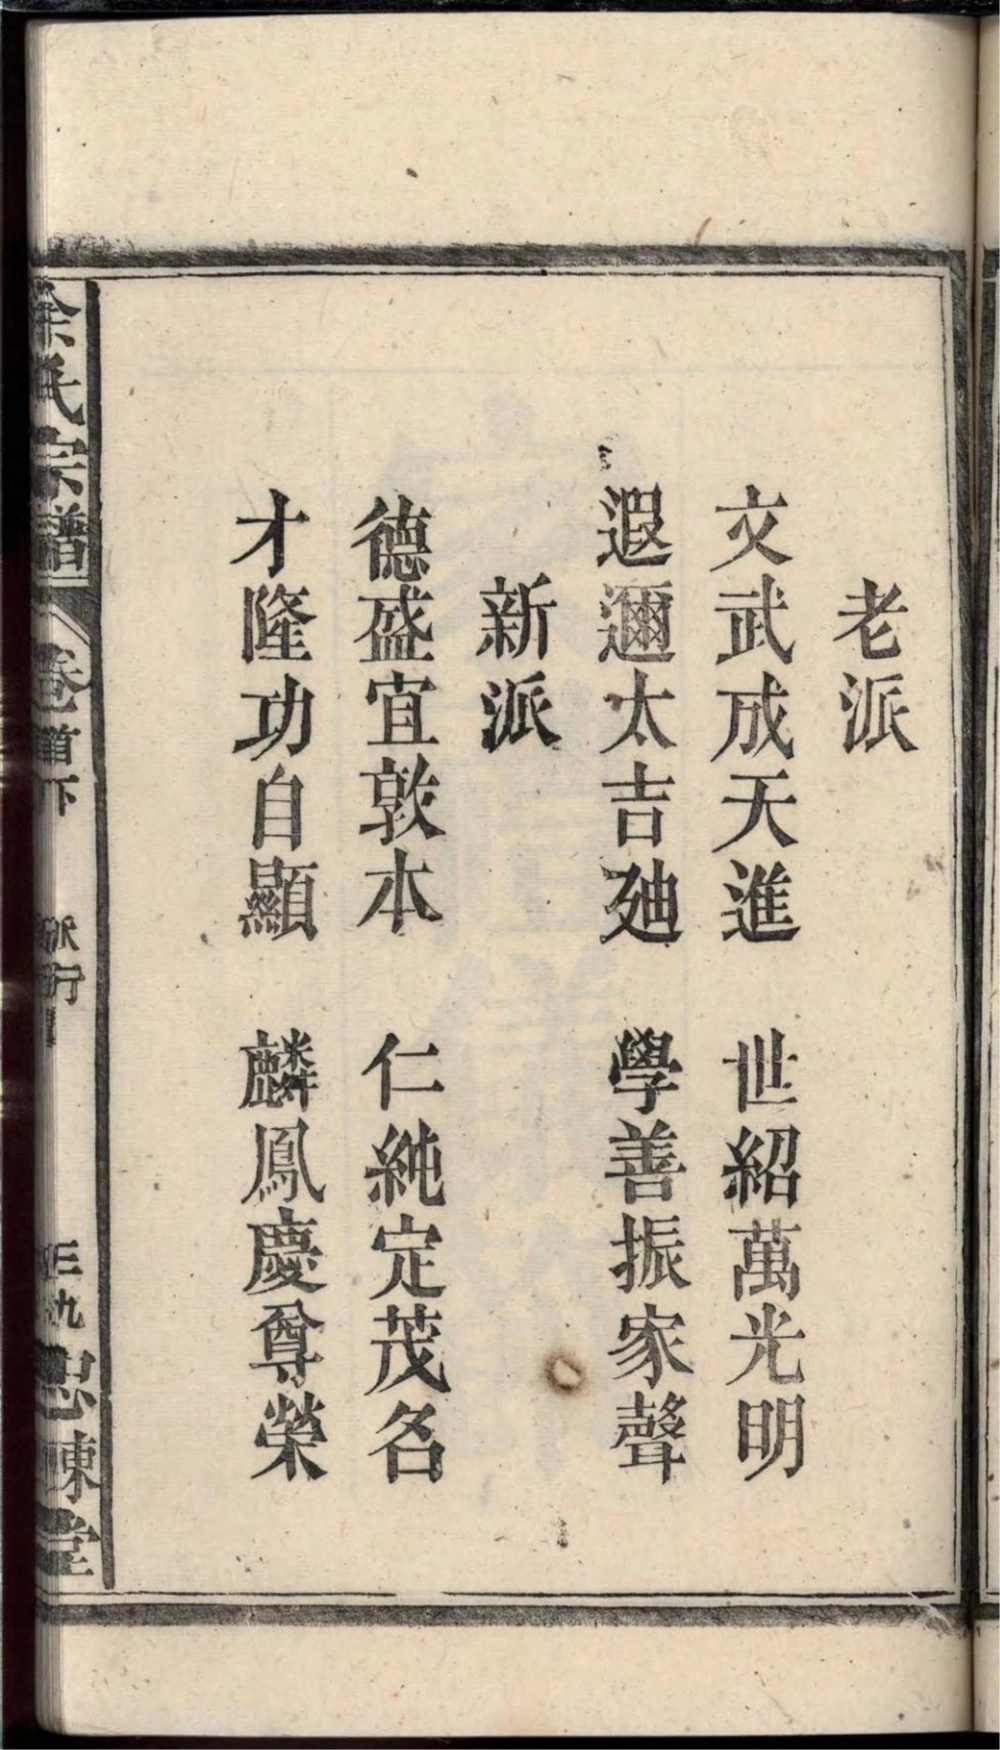 老派
文武成天進 世紹萬光明
遐邇太吉廸 學善振家聲
新派
德盛宜敦本 仁純定茂名
才隆功自顯 麟鳳慶尊榮
氏宗譜 卷首下 派行 三九 忠諫堂